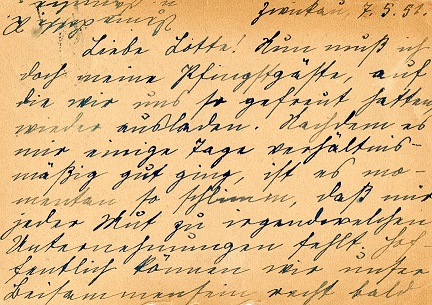 Zwenkau, 7.5.51.
Liebe Lotte! Nun muß ich
doch meine Pfingstgäste, auf
die wir uns so gefreut hatten,
wieder ausladen. Nachdem es
mir einige Tage verhältnis-
mäßig gut ging, ist es mo-
mentan so schlimm, daß mir
jeder Mut zu irgendwelchen
Unternehmungen fehlt. Hof-
fentlich können wir unser
Beisammensein recht bald